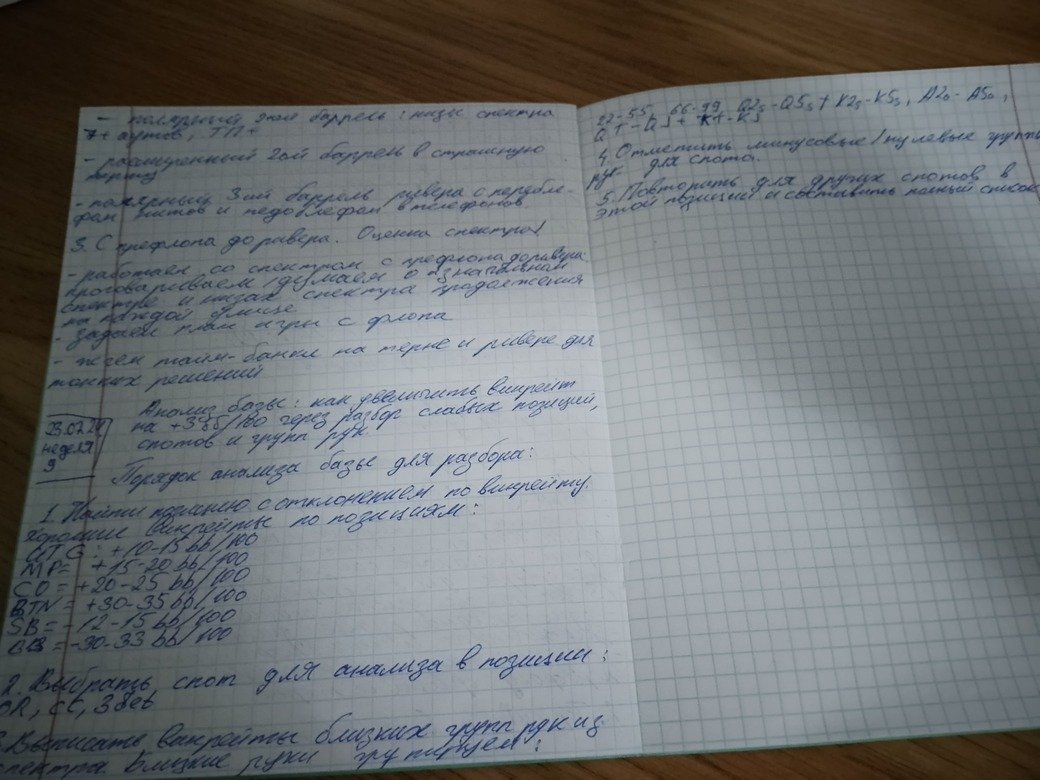 - полярный 2ой баррель: низы спектра
7+ аутов, ТП+
- расширенный 2ой баррель в страшную
терну
- полярный 3ий баррель ривера с переблефом
фитов и недоблефом в телефонов
3. С префлопа до ривера. Оценка спектра!
- работаем со спектром с префлопа до ривера:
проговариваем/думаем о изначальном
спектре и низах спектра продолжения
на каждой улице
- задаем план игры с флопа
- жгем тайм-банки на терне и ривере для
тонких решений
неделя
9
Анализ базы: как увеличить винрейт
на +3бб/100 через разбор слабых позиций,
спотов и групп рук
Порядок анализа базы для разбора:
1. Найти позицию с отклонением по винрейту.
Хорошие винрейты по позициям:
UTG: +10-15 bb/100
MP= +15-20 bb/100
CO = +20-25 bb/100
BTN = +30-35 bb/100
SB = -12-15 bb/100
BB = -30-33 bb/100
2. Выбрать спот для анализа в позиции:
OR, CC, 3bet
3. Выписать винрейты близких групп рук из
спектра. Близкие руки группируем:
22-55, 66-99, Q2s-Q5s, K2s-K5s, A2o-A5o,
4. Отметить минусовые/нулевые группы
рук для спота.
5. Повторить для других спотов в
этой позиции и составить полный список